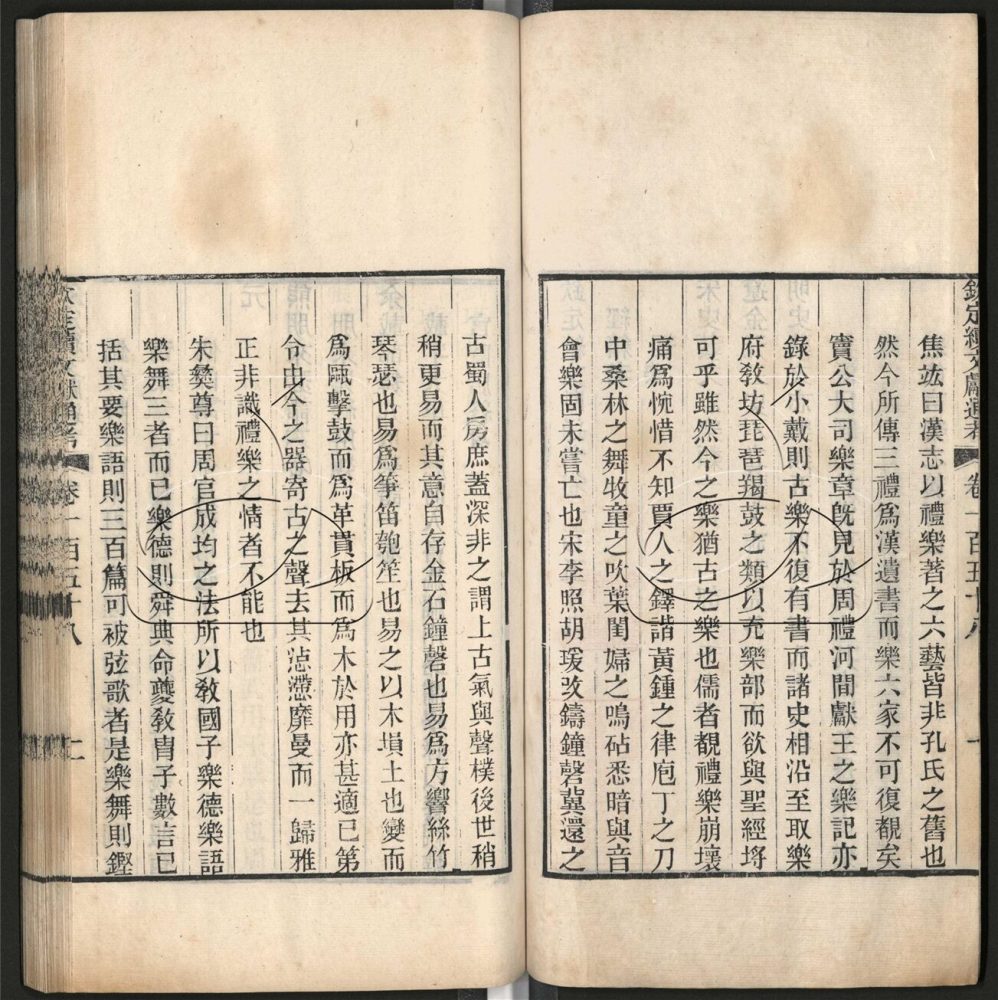 欽定續文獻通考 卷一百五十八 一
焦竑曰漢志以禮樂著之六藝皆非孔氏之舊也
然今所傳三禮爲漢遺書而樂六家不可復覩矣
竇公大司樂章旣見於周禮河間獻王之樂記亦
錄於小戴則古樂不復有書而諸史相沿至取樂
府敎坊琵琶羯鼓之類以充樂部而欲與聖經埒
可乎雖然今之樂猶古之樂也儒者覩禮樂崩壞
痛爲惋惜不知賈人之鐸諧黃鍾之律庖丁之刀
中桑林之舞牧童之吹葉閨婦之鳴砧悉暗與音
會樂固未嘗亡也宋李照胡瑗改鑄鐘磬冀還之
古蜀人房庶蓋深非之謂上古氣與聲樸後世稍
稍更易而其意自存金石鐘磬也易爲方響絲竹
琴瑟也易爲箏笛匏笙也易之以木塤土也變而
爲甌擊鼓而爲革貫板而爲木於用亦甚適已第
令由今之器寄古之聲去其惉懘靡曼而一歸雅
正非識禮樂之情者不能也
朱彝尊曰周官成均之法所以敎國子樂德樂語
樂舞三者而已樂德則舜典命夔敎胄子數言已
括其要樂語則三百篇可被弦歌者是樂舞則鏗
欽定續文獻通考 卷一百五十八 二